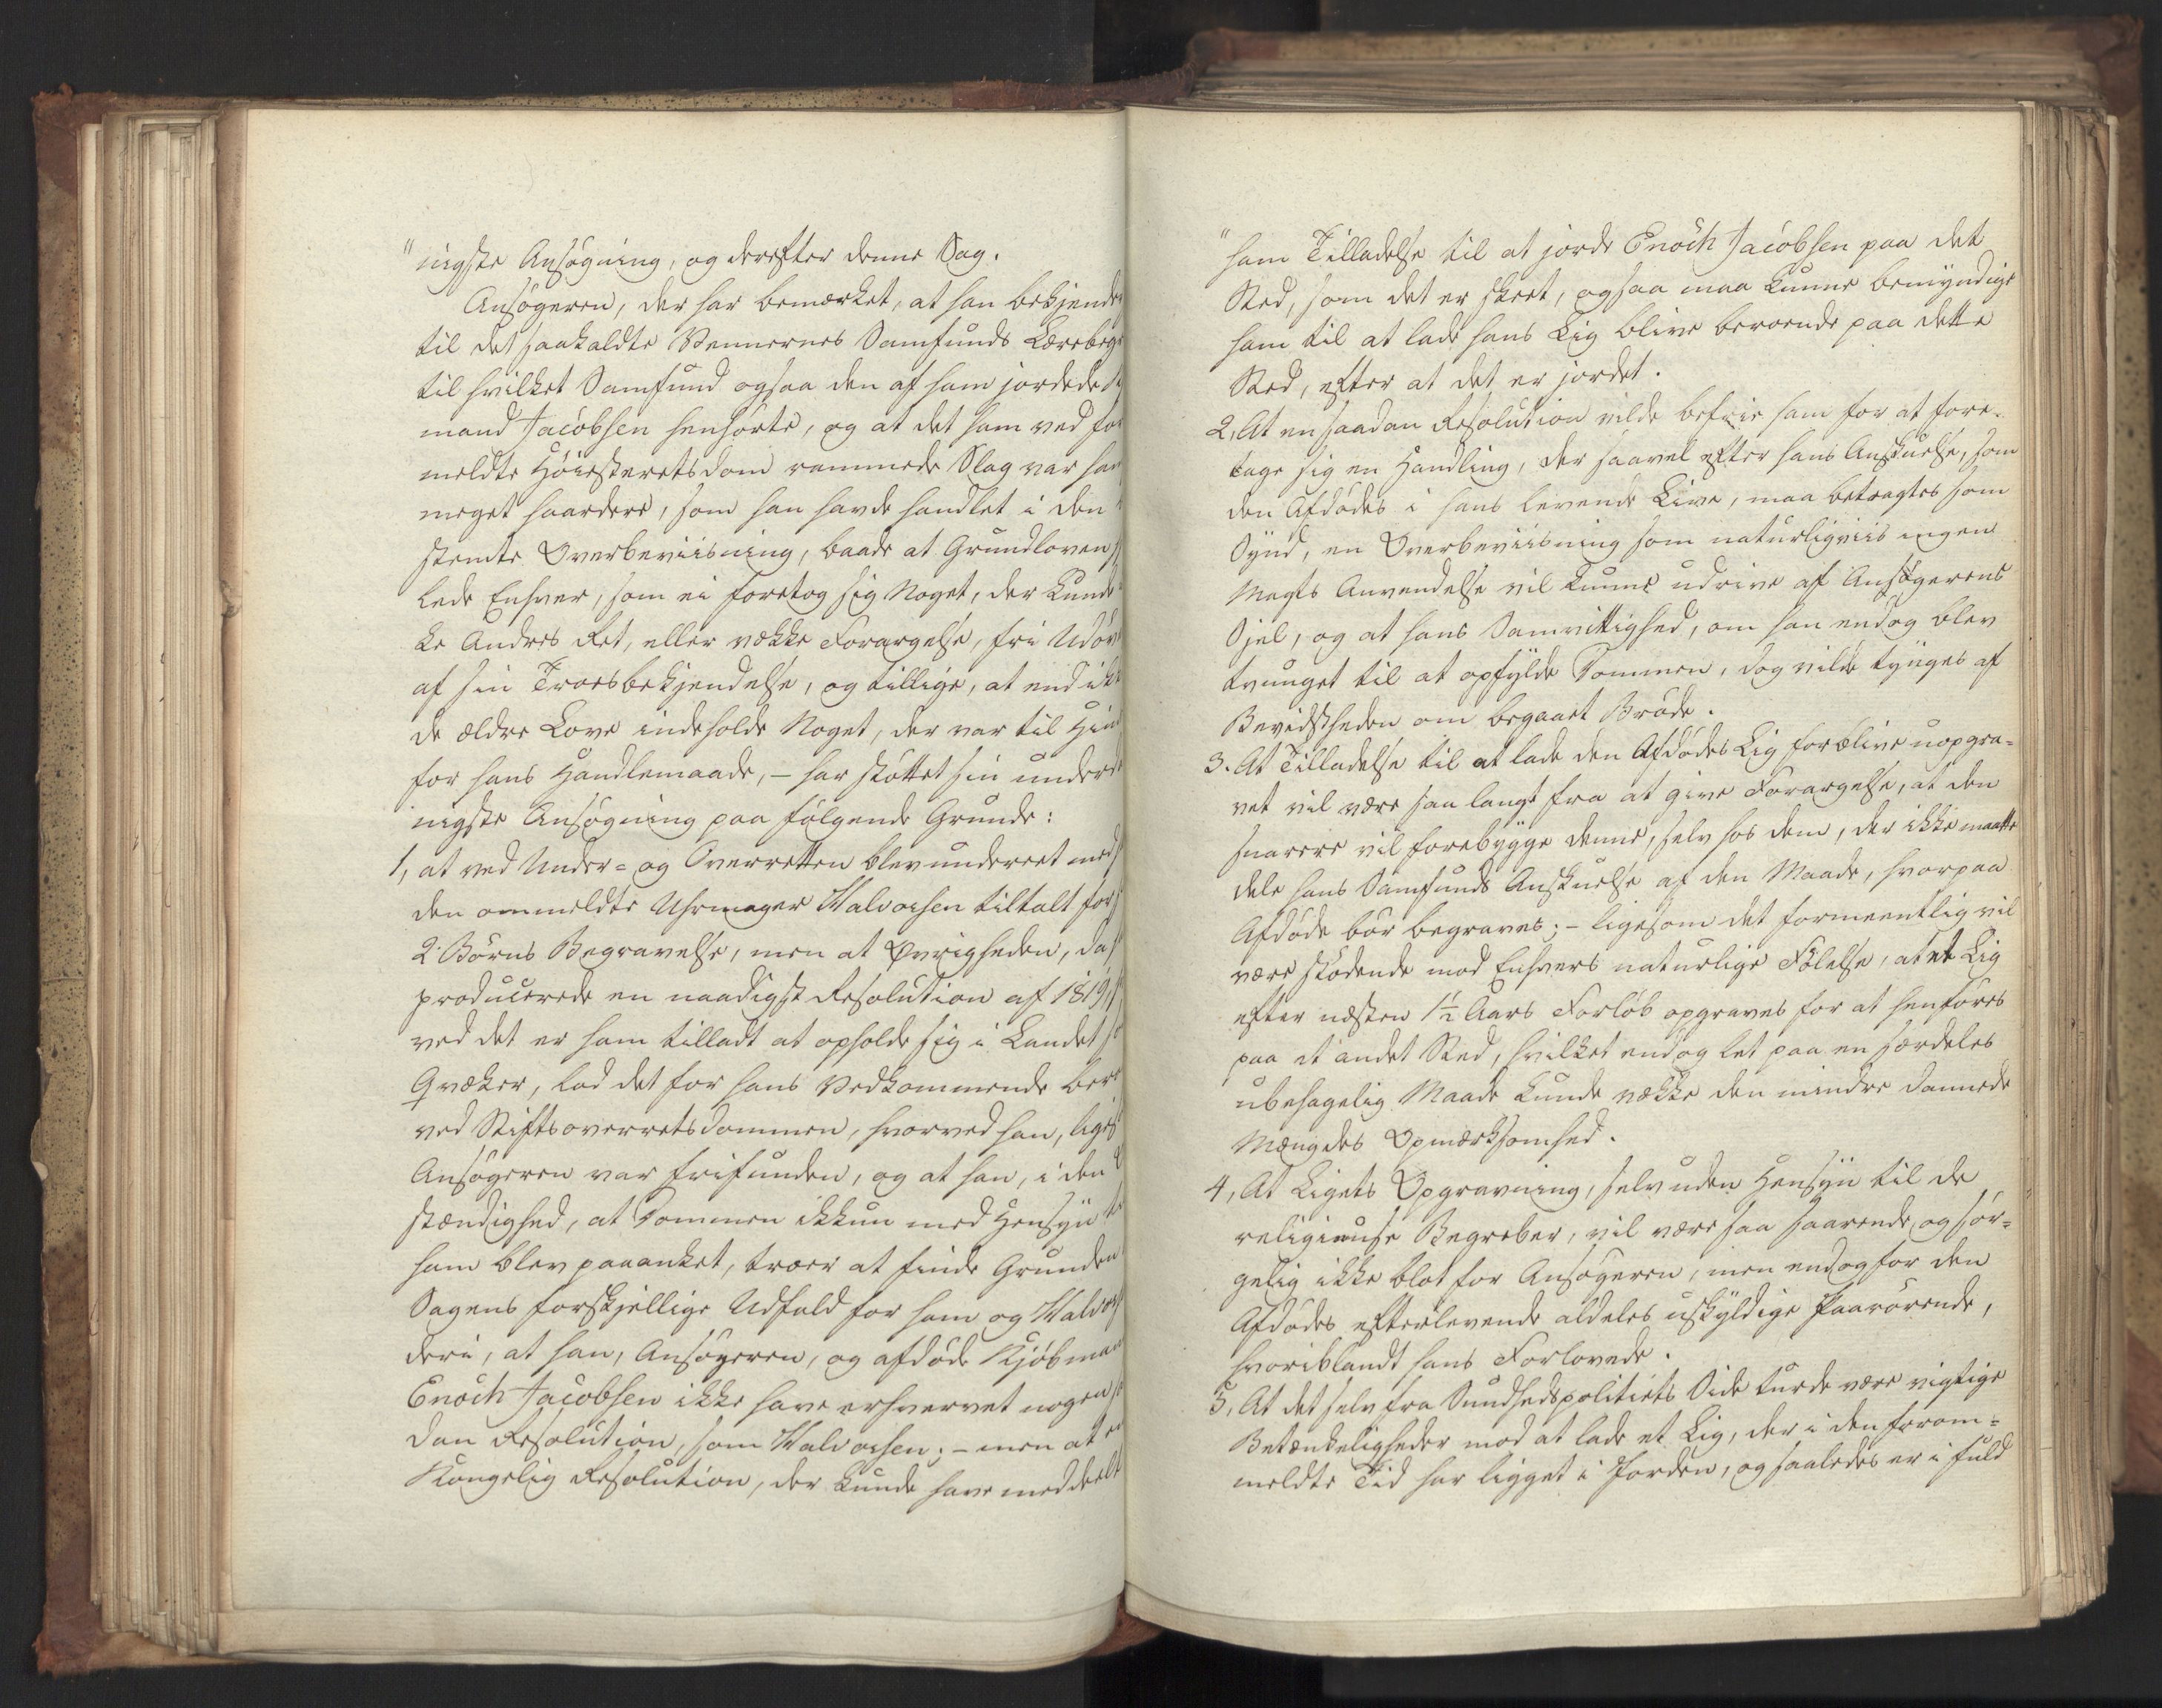 "nigste Ansøgning, og derefter denne Sag.
Ansøgeren, der har bemærket, at han bekjender
til det saakaldte Vennernes Samfunds Lærebegr
til hvilket Samfund ogsaa den af ham jordede
mand Jacobsen henhørte, og at det ham ved for
meldte Høiesteretsdom rammede Slag var ham
meget haardere, som han havde handlet i den
stemte Overbeviisning, baade at Grundloven
lede Enhver, som ei foretog sig Noget, der kunde
ke Andres Ret, eller vække Forargelse, fri Udøv
af sin Troesbekjendelse, og tillige, at end ikke
de ældre Love indeholde Noget, der var til Hind
for hans Handlemaade, – har støttet sin underd
nigste Ansøgning paa følgende Grunde:
1, at ved Under- og Overretten blev undereet med
den ommeldte Uhrmager Halvorsen tiltalt for
2 Børns Begravelse, men at Øvrigheden, da
producerede en naadigst Resolution af 1819,
ved det er ham tilladt at opholde sig i Landet
Qvæker, lod det for hans Vedkommende bero
ved Stiftsoverretsdommen, hvorved han, liges
Ansøgeren var frifunden, og at han, i den
stændighed, at Dommen ikkun med Hensyn til
ham blev paaanket, troer at finde Grunden
Sagens forskjellige Udfald for ham og Halvors
deri, at han, Ansøgeren, og afdøde Kjøbman
Enoch Jacobsen ikke have erhvervet nogen
dan Resolution, som Halvorsen; – men at en
Kongelig Resolution, der kunde have meddeelt
"ham Tilladelse til at jorde Enoch Jacobsen paa det
Sted, som det er skeet, ogsaa maa kunne bemyndige
ham til at lade hans Lig blive beroende paa dette
Sted, efter at det er jordet.
2, At en saadan Resolution vilde befrie ham for at fore-
tage sig en Handling, der saavel efter hans Anskuelse, som
den Afdødes i hans levende Live, maa betragtes som
Synd, en Overbeviisning som naturligviis ingen
Magts Anvendelse vil kunne udrive af Ansøgerens
Sjel, og at hans Samvittighed, om han endog blev
tvunget til at opfylde Dommen, dog vilde tynges af
Bevidstheden om begaaet Brøde.
3. At Tilladelse til at lade den Afdødes Lig forblive uopgra-
vet vil være saa langt fra at give Forargelse, at den
snarere vil forebygge denne, selv hos dem, der ikke maatte
dele hans Samfunds Anskuelse af den Maade, hvorpaa
Afdøde bør begraves; – ligesom det formeentlig vil
være stødende mod Enhvers naturlige Følelse, at et Lig
efter næsten 1½ Aars Forløb opgraves for at henføres
paa et andet Sted, hvilket endog let paa en særdeles
ubehagelig Maade kunde vække den mindre dannede
Mængdes Opmærksomhed.
4, At Ligets Opgravning, selv uden Hensyn til de
religieuse Begreber, vil være saa saarende og sør-
gelig ikke blot for Ansøgeren, men endog for den
Afdødes efterlevende aldeles uskyldige Paarørende,
hvoriblandt hans Forlovede.
5, At det selv fra Sundhedspolitiets Side turde være vigtige
Betænkeligheder mod at lade et Lig, der i den forom-
meldte Tid har ligget i Jorden, og saaledes er i fuld